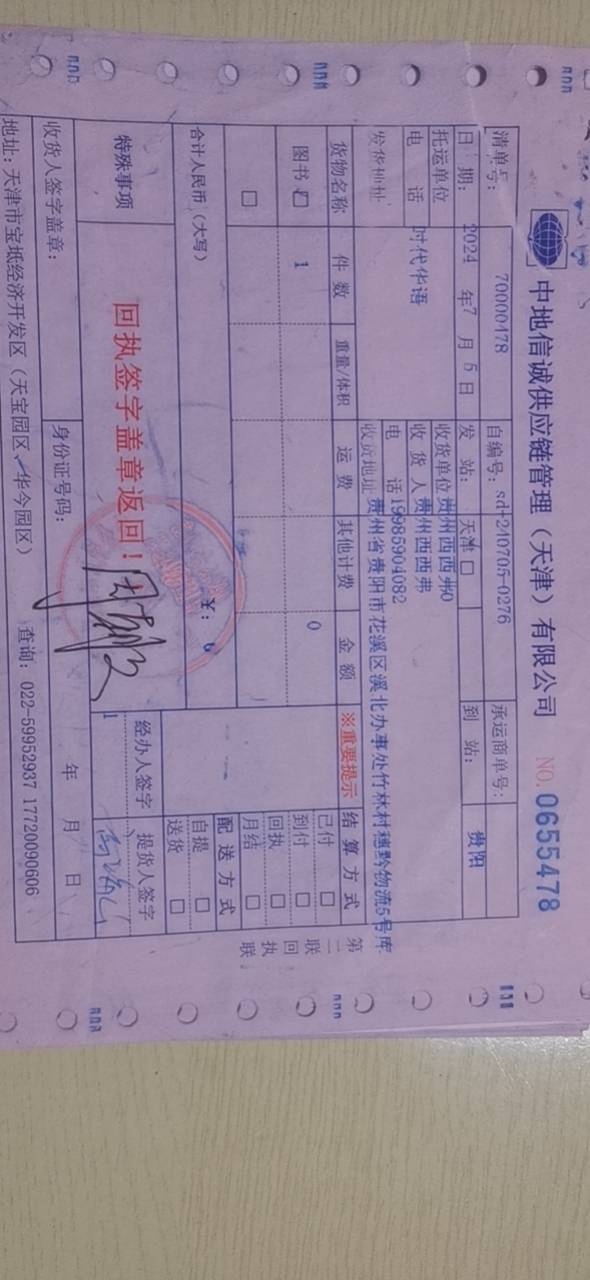 中地信诚供应链管理（天津）有限公司 NO.0655478
清单号： 70000478 自编号：sd-240705-0276 承运商单号：
日 期： 2024 年 7 月 5 日 发 站： 天津 到 站： 贵阳
托运单位 时代华语 收货单位 贵州西西弗0
电 话 收 货 人 贵州西西弗
电 话 19985904082
发货地址 收货地址 贵州省贵阳市花溪区溪北办事处竹林村穗黔物流5号库
货物名称 件 数 重量/体积 运 费 其他计费 金 额 ※重要提示 结 算 方 式
图书 1 0
已付 □
到付 □
回执 □
月结 □
合计人民币（大写） ¥：
配 送 方 式
自提 □
送货 □
特殊事项 回执签字盖章返回！ 经办人签字 提货人签字
收货人签字盖章： 身份证号码： 年 月 日
地址：天津市宝坻经济开发区（天宝园区、华今园区） 查询：022-59952937 17720090606
第二联 回执联